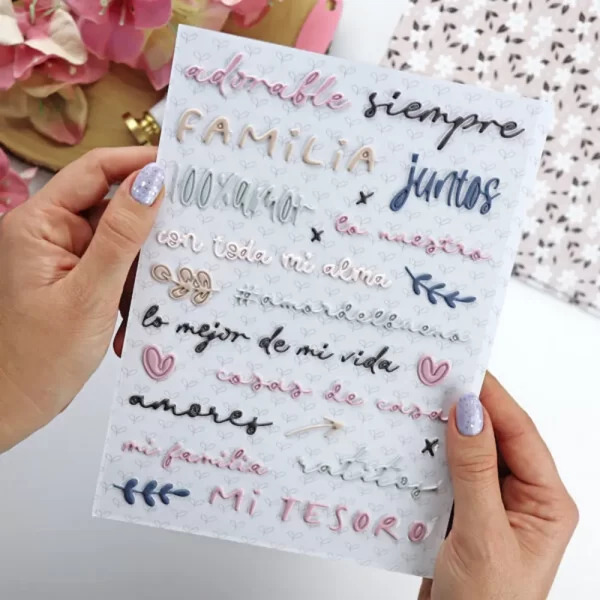 adorable siempre
FAMiLiA
juntos
100x amor
lo nuestro
con toda mi alma
#amordelbueno
lo mejor de mi vida
cosas de casa
amores
mi familia ratitos
Mi TESORO